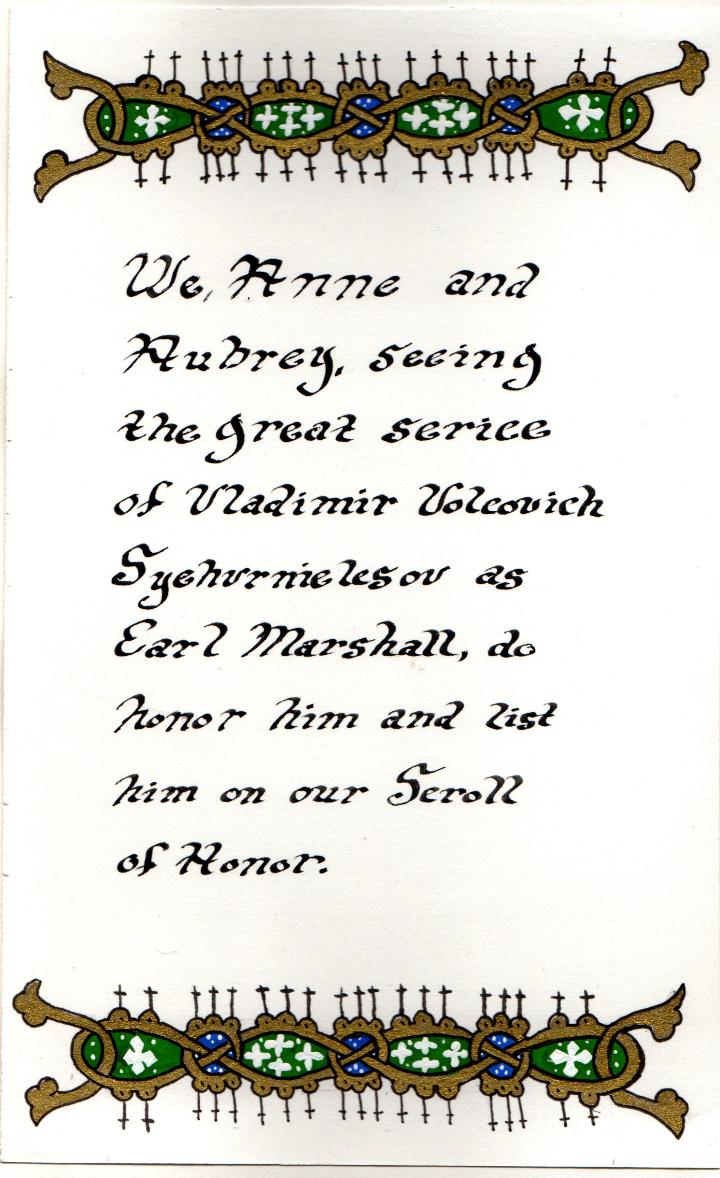 We, Anne and
Aubrey, seeing
the great serice
of Vladimir Volcovich
as
Earl Marshall, do
honor him and list
him on our Scroll
of Honor.